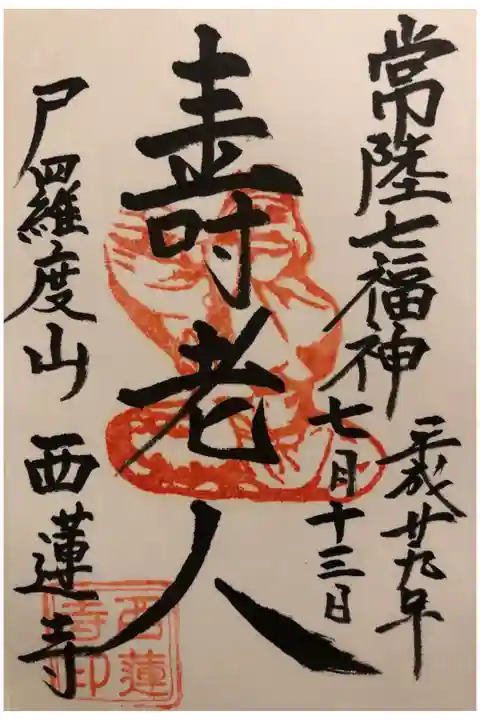 常陸七福神
平成廿九年
七月十三日
壽老人
尸羅度山 西蓮寺
西蓮
寺印